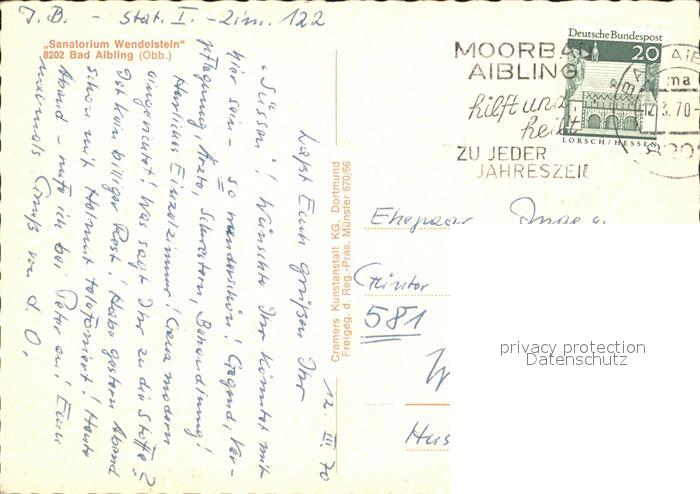 J.B. - Stat. I. - Zim. 122
„Sanatorium Wendelstein"
8202 Bad Aibling (Obb.)
12. III. 70
Laßt Euch grüßen Ihr
„Süssen"! Wünschte Ihr könntet mit
hier sein - so wunderschön! Gegend, Ver-
pflegung, Ärzte, Schwestern, Behandlung!
Herrliches Einzelzimmer! Ganz modern
eingerichtet! Was sagt Ihr zu die Stoffe?
Ist kein billiger Rest! Habe gestern Abend
schon mit Helmut telefoniert! Heute
Abend - rufe ich bei Peter an! Euch
nochmals Gruß von d. O.
Cramers Kunstanstalt KG, Dortmund
Freigeg. d. Reg.-Präs. Münster 670/66
MOORBAD
AIBLING
hilft und
heilt
ZU JEDER
JAHRESZEIT
Deutsche Bundespost
20
LORSCH/HESSEN
12.3.70
Ehepaar
Günter
581
W
Hus
privacy protection
Datenschutz